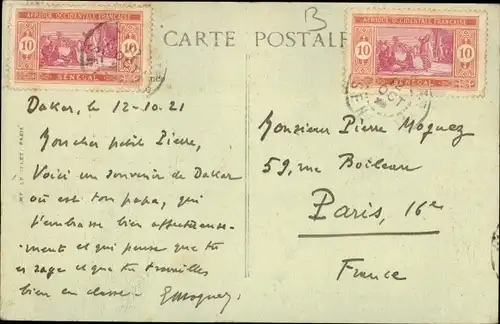 AFRIQUE OCCIDENTALE FRANÇAISE
10
10
SÉNÉGAL
B
AFRIQUE OCCIDENTALE FRANÇAISE
10
10
SÉNÉGAL
CARTE POSTALE
OCT
SEN
Dakar, le 12-10-21
Mon cher petit Pierre,
Voici un souvenir de Dakar
où est ton papa, qui
t'embrasse bien affectueuse-
ment et qui pense que tu
es sage et que tu travailles
bien en classe.
Monsieur Pierre Moguez
59, rue Boileau
Paris, 16e
France